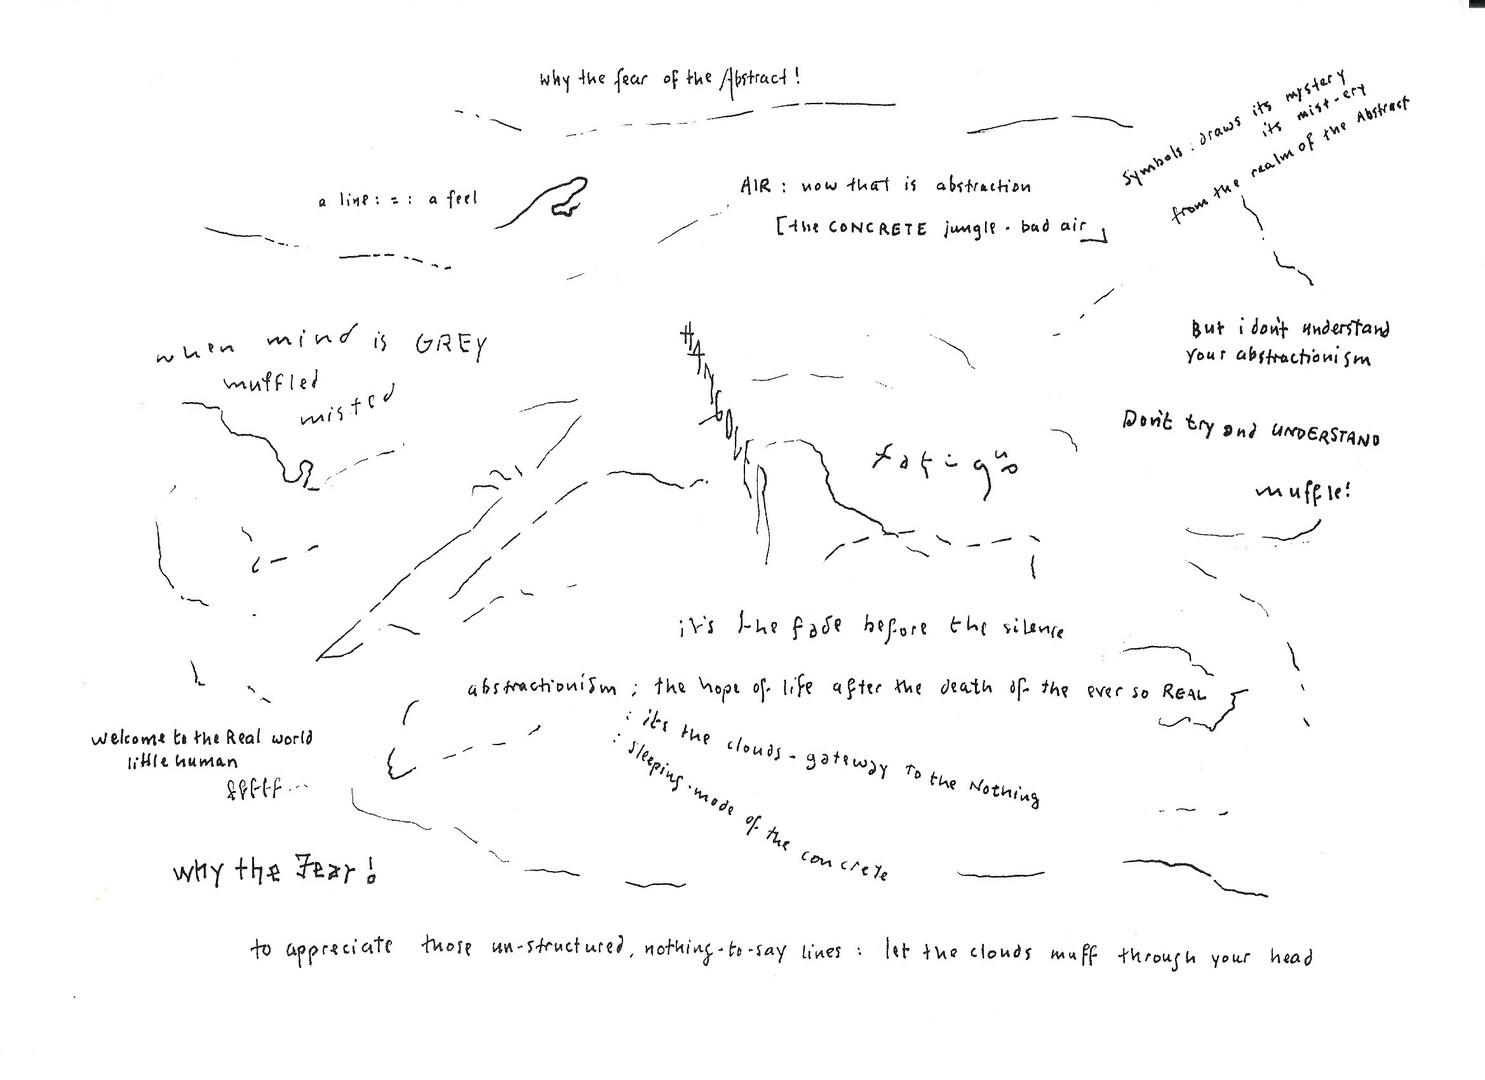 why the fear of the Abstract!
Symbols: draws its mystery
its mist-ery
from the realm of the Abstract
a line: = : a feel
AIR : now that is abstraction
[the CONCRETE jungle - bad air]
when mind is GREY
muffled
misted
But i don't understand
your abstractionism
Don't try and UNDERSTAND
muffle!
it's the fade before the silence
abstractionism ; the hope of life after the death of the ever so REAL
: its the clouds - gateway To the Nothing
: sleeping-mode of the concrete
welcome to the Real world
little human
why the Fear!
to appreciate those un-structured, nothing-to-say lines : let the clouds muff through your head